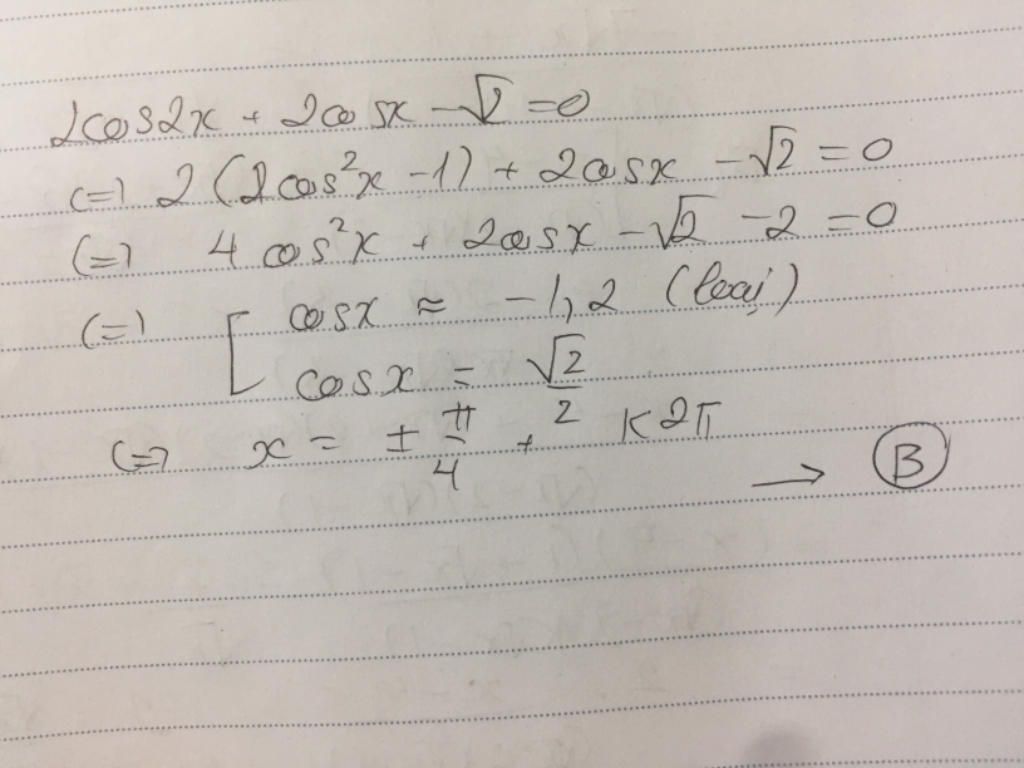 2cos2x + 2cosx - √2 = 0
(=) 2(2cos²x - 1) + 2cosx - √2 = 0
(=) 4cos²x + 2cosx - √2 - 2 = 0
(=) [ cosx ≈ -1,2 (loại)
cosx = √2/2
(=) x = ± π/4 + k2π
→ B